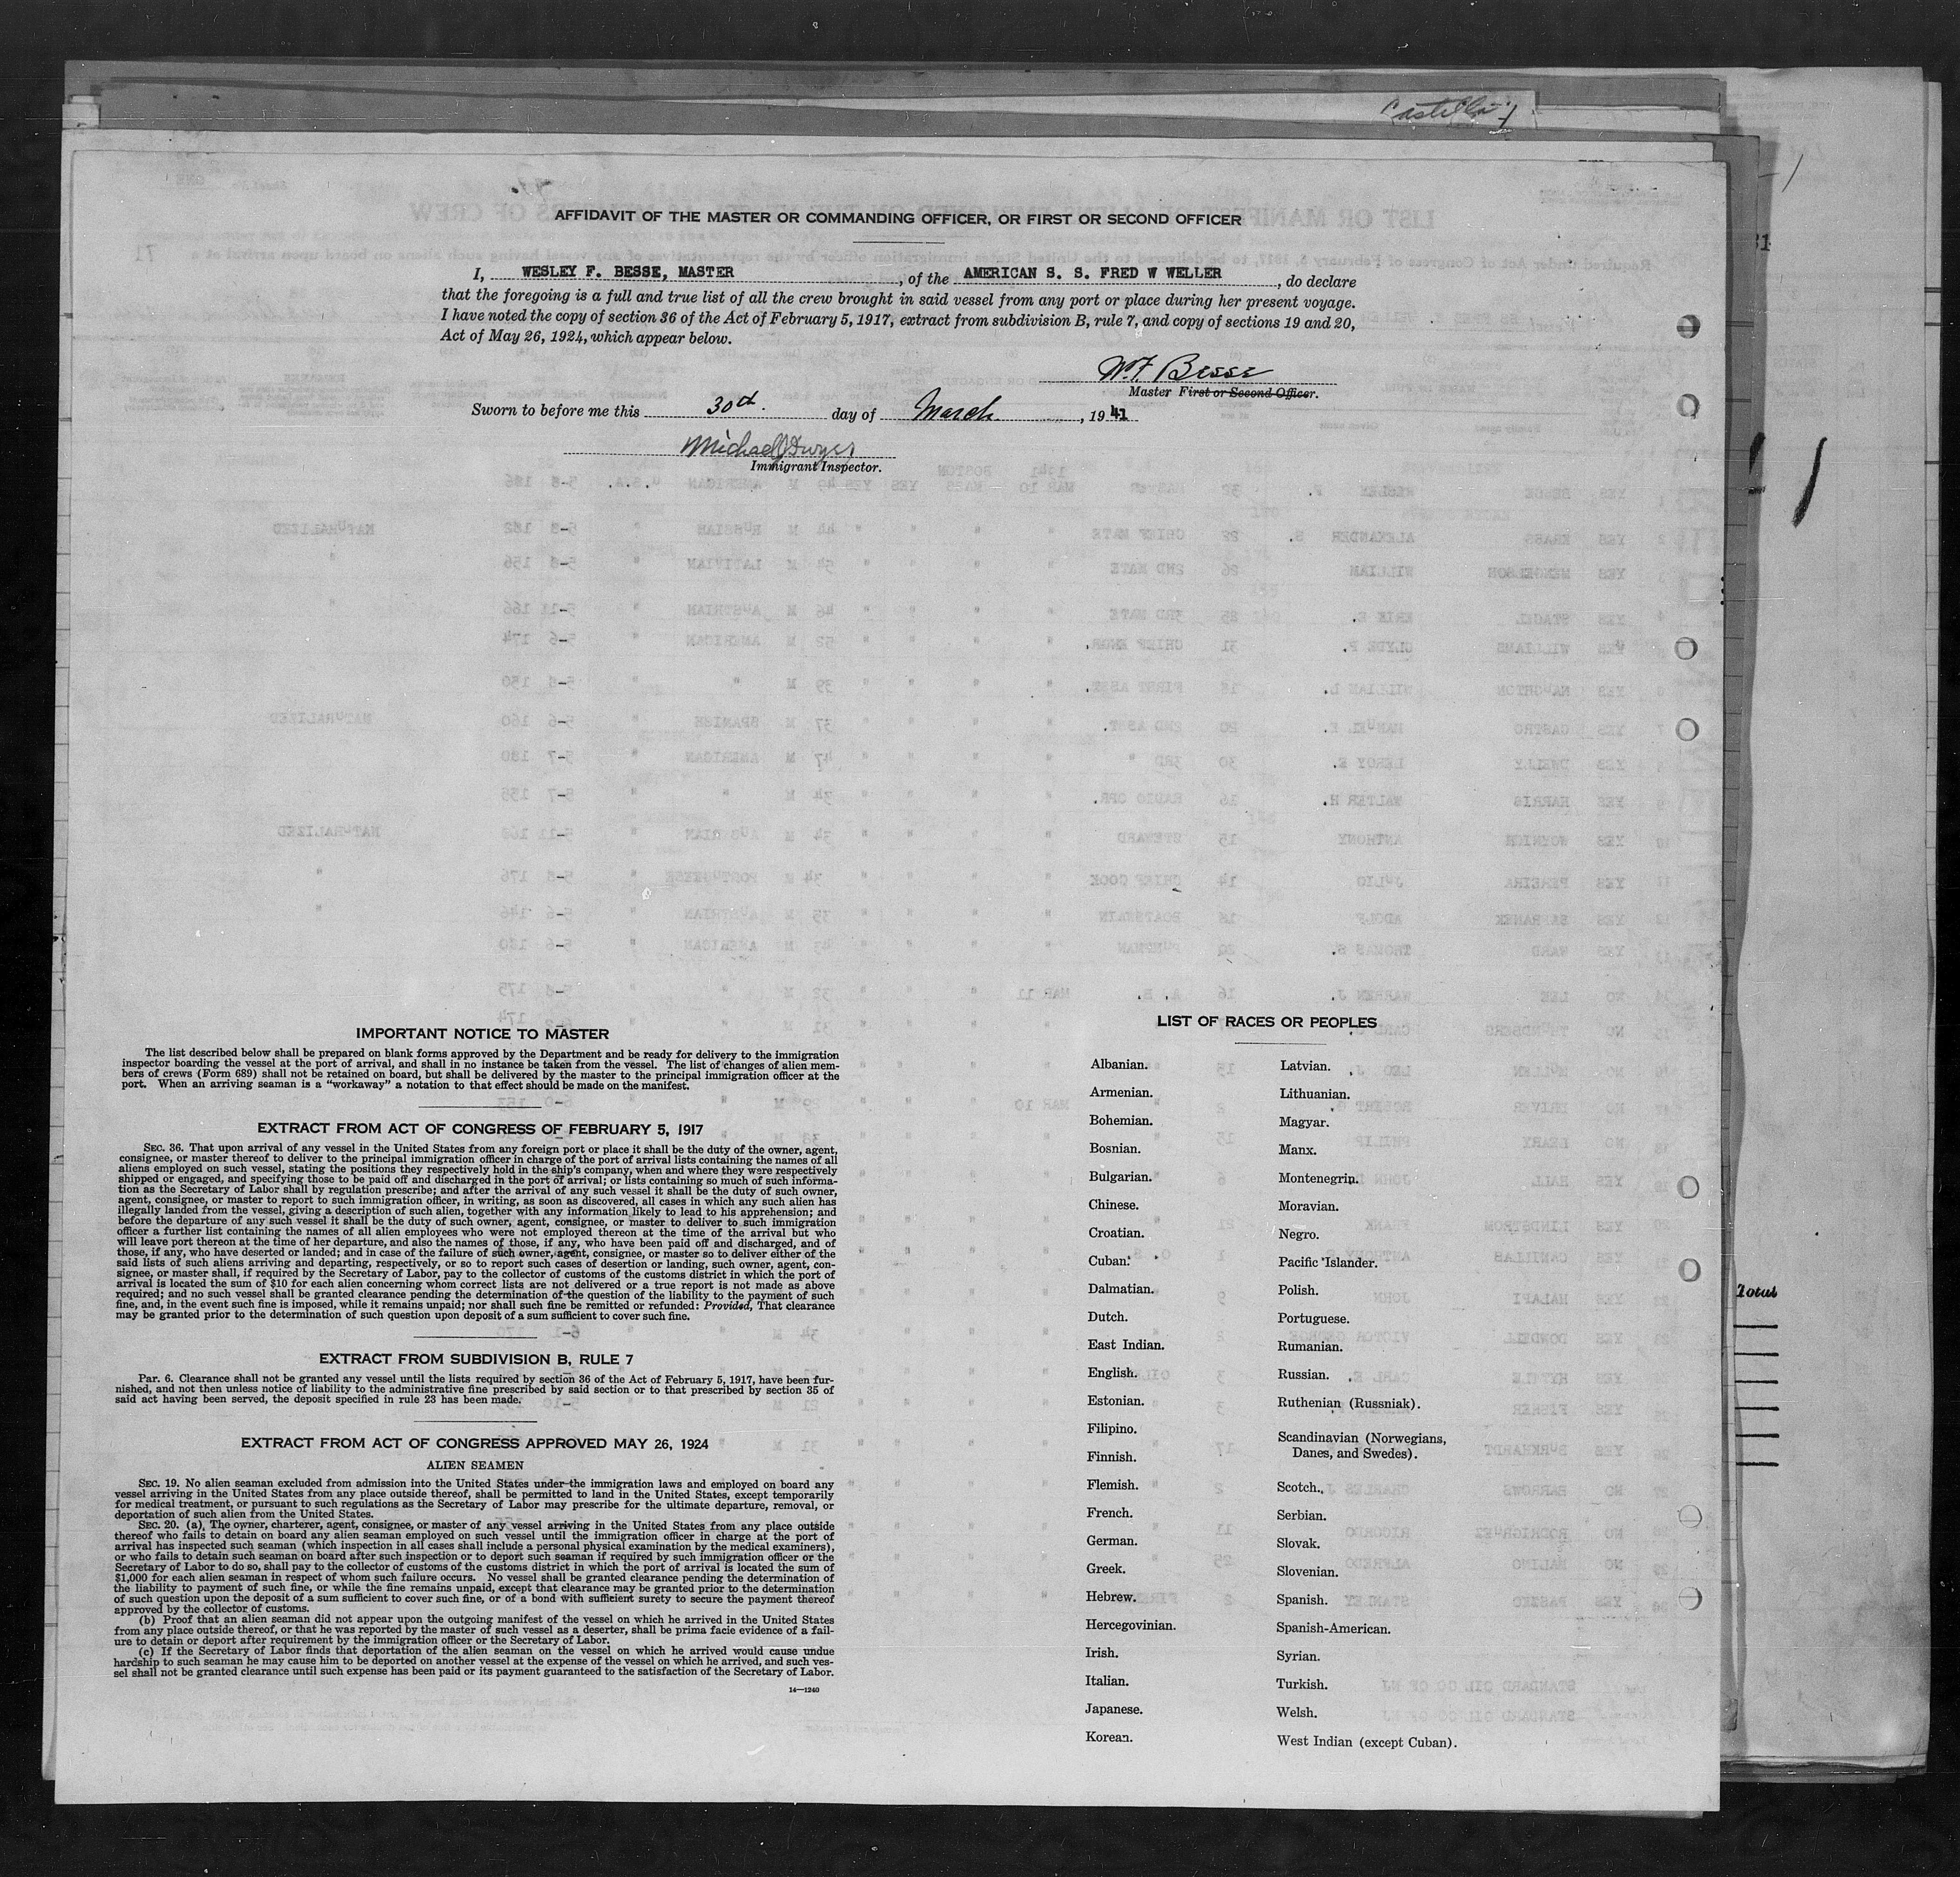 Castilla
AFFIDAVIT OF THE MASTER OR COMMANDING OFFICER, OR FIRST OR SECOND OFFICER
I, WESLEY F. BESSE, MASTER, of the AMERICAN S. S. FRED W WELLER, do declare
that the foregoing is a full and true list of all the crew brought in said vessel from any port or place during her present voyage.
I have noted the copy of section 36 of the Act of February 5, 1917, extract from subdivision B, rule 7, and copy of sections 19 and 20,
Act of May 26, 1924, which appear below.
W.F. Besse
Master First or Second Officer.
Sworn to before me this 30th day of March, 1941
Michael J Dwyer
Immigrant Inspector.
IMPORTANT NOTICE TO MASTER
The list described below shall be prepared on blank forms approved by the Department and be ready for delivery to the immigration
inspector boarding the vessel at the port of arrival, and shall in no instance be taken from the vessel. The list of changes of alien mem-
bers of crews (Form 689) shall not be retained on board, but shall be delivered by the master to the principal immigration officer at the
port. When an arriving seaman is a “workaway” a notation to that effect should be made on the manifest.
EXTRACT FROM ACT OF CONGRESS OF FEBRUARY 5, 1917
SEC. 36. That upon arrival of any vessel in the United States from any foreign port or place it shall be the duty of the owner, agent,
consignee, or master thereof to deliver to the principal immigration officer in charge of the port of arrival lists containing the names of all
aliens employed on such vessel, stating the positions they respectively hold in the ship's company, when and where they were respectively
shipped or engaged, and specifying those to be paid off and discharged in the port of arrival; or lists containing so much of such informa-
tion as the Secretary of Labor shall by regulation prescribe; and after the arrival of any such vessel it shall be the duty of such owner,
agent, consignee, or master to report to such immigration officer, in writing, as soon as discovered, all cases in which any such alien has
illegally landed from the vessel, giving a description of such alien, together with any information likely to lead to his apprehension; and
before the departure of any such vessel it shall be the duty of such owner, agent, consignee, or master to deliver to such immigration
officer a further list containing the names of all alien employees who were not employed thereon at the time of the arrival but who
will leave port thereon at the time of her departure, and also the names of those, if any, who have been paid off and discharged, and of
those, if any, who have deserted or landed; and in case of the failure of such owner, agent, consignee, or master so to deliver either of the
said lists of such aliens arriving and departing, respectively, or so to report such cases of desertion or landing, such owner, agent, con-
signee, or master shall, if required by the Secretary of Labor, pay to the collector of customs of the customs district in which the port of
arrival is located the sum of $10 for each alien concerning whom correct lists are not delivered or a true report is not made as above
required; and no such vessel shall be granted clearance pending the determination of the question of the liability to the payment of such
fine, and, in the event such fine is imposed, while it remains unpaid; nor shall such fine be remitted or refunded: Provided, That clearance
may be granted prior to the determination of such question upon deposit of a sum sufficient to cover such fine.
EXTRACT FROM SUBDIVISION B, RULE 7
Par. 6. Clearance shall not be granted any vessel until the lists required by section 36 of the Act of February 5, 1917, have been fur-
nished, and not then unless notice of liability to the administrative fine prescribed by said section or to that prescribed by section 35 of
said act having been served, the deposit specified in rule 23 has been made.
EXTRACT FROM ACT OF CONGRESS APPROVED MAY 26, 1924
ALIEN SEAMEN
SEC. 19. No alien seaman excluded from admission into the United States under the immigration laws and employed on board any
vessel arriving in the United States from any place outside thereof, shall be permitted to land in the United States, except temporarily
for medical treatment, or pursuant to such regulations as the Secretary of Labor may prescribe for the ultimate departure, removal, or
deportation of such alien from the United States.
SEC. 20. (a) The owner, charterer, agent, consignee, or master of any vessel arriving in the United States from any place outside
thereof who fails to detain on board any alien seaman employed on such vessel until the immigration officer in charge at the port of
arrival has inspected such seaman (which inspection in all cases shall include a personal physical examination by the medical examiners),
or who fails to detain such seaman on board after such inspection or to deport such seaman if required by such immigration officer or the
Secretary of Labor to do so, shall pay to the collector of customs of the customs district in which the port of arrival is located the sum of
$1,000 for each alien seaman in respect of whom such failure occurs. No vessel shall be granted clearance pending the determination of
the liability to payment of such fine, or while the fine remains unpaid, except that clearance may be granted prior to the determination
of such question upon the deposit of a sum sufficient to cover such fine, or of a bond with sufficient surety to secure the payment thereof
approved by the collector of customs.
(b) Proof that an alien seaman did not appear upon the outgoing manifest of the vessel on which he arrived in the United States
from any place outside thereof, or that he was reported by the master of such vessel as a deserter, shall be prima facie evidence of a fail-
ure to detain or deport after requirement by the immigration officer or the Secretary of Labor.
(c) If the Secretary of Labor finds that deportation of the alien seaman on the vessel on which he arrived would cause undue
hardship to such seaman he may cause him to be deported on another vessel at the expense of the vessel on which he arrived, and such ves-
sel shall not be granted clearance until such expense has been paid or its payment guaranteed to the satisfaction of the Secretary of Labor.
14—1240
LIST OF RACES OR PEOPLES
Albanian.
Armenian.
Bohemian.
Bosnian.
Bulgarian.
Chinese.
Croatian.
Cuban.
Dalmatian.
Dutch.
East Indian.
English.
Estonian.
Filipino.
Finnish.
Flemish.
French.
German.
Greek.
Hebrew.
Hercegovinian.
Irish.
Italian.
Japanese.
Korean.
Latvian.
Lithuanian.
Magyar.
Manx.
Montenegrin.
Moravian.
Negro.
Pacific Islander.
Polish.
Portuguese.
Rumanian.
Russian.
Ruthenian (Russniak).
Scandinavian (Norwegians,
Danes, and Swedes).
Scotch.
Serbian.
Slovak.
Slovenian.
Spanish.
Spanish-American.
Syrian.
Turkish.
Welsh.
West Indian (except Cuban).
Total